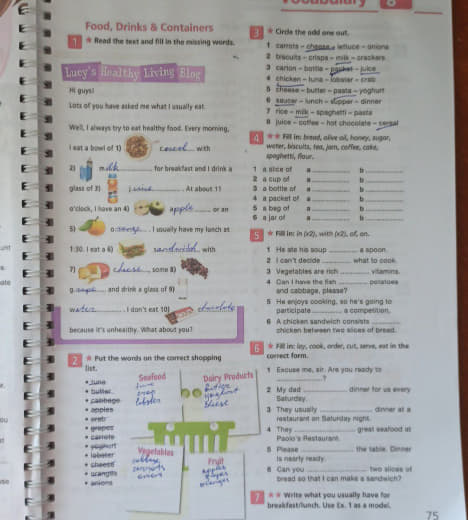 Vocabulary 8
Food, Drinks & Containers
1 ★ Read the text and fill in the missing words.
Lucy's Healthy Living Blog
Hi guys!
Lots of you have asked me what I usually eat.
Well, I always try to eat healthy food. Every morning,
I eat a bowl of 1) cereal with
2) milk for breakfast and I drink a
glass of 3) juice. At about 11
o'clock, I have an 4) apple or an
5) orange. I usually have my lunch at
1:30. I eat a 6) sandwich with
7) cheese, some 8)
grapes and drink a glass of 9)
water. I don't eat 10) chocolate
because it's unhealthy. What about you?
2 ★ Put the words on the correct shopping
list.
• tuna
• butter
• cabbage
• apples
• crab
• grapes
• carrots
• yoghurt
• lobster
• cheese
• oranges
• onions
Seafood
tuna
crab
lobster
Dairy Products
butter
yoghurt
cheese
Vegetables
cabbage
carrots
onions
Fruit
apples
grapes
oranges
3 ★ Circle the odd one out.
1 carrots – cheese – lettuce – onions
2 biscuits – crisps – milk – crackers
3 carton – bottle – packet – juice
4 chicken – tuna – lobster – crab
5 cheese – butter – pasta – yoghurt
6 saucer – lunch – supper – dinner
7 rice – milk – spaghetti – pasta
8 juice – coffee – hot chocolate – cereal
4 ★★ Fill in: bread, olive oil, honey, sugar,
water, biscuits, tea, jam, coffee, cake,
spaghetti, flour.
1 a slice of a b
2 a cup of a b
3 a bottle of a b
4 a packet of a b
5 a bag of a b
6 a jar of a b
5 ★ Fill in: in (x2), with (x2), of, on.
1 He ate his soup a spoon.
2 I can't decide what to cook.
3 Vegetables are rich vitamins.
4 Can I have the fish potatoes
and cabbage, please?
5 He enjoys cooking, so he's going to
participate a competition.
6 A chicken sandwich consists
chicken between two slices of bread.
6 ★ Fill in: lay, cook, order, cut, serve, eat in the
correct form.
1 Excuse me, sir. Are you ready to
?
2 My dad dinner for us every
Saturday.
3 They usually dinner at a
restaurant on Saturday night.
4 They great seafood at
Paolo's Restaurant.
5 Please the table. Dinner
is nearly ready.
6 Can you two slices of
bread so that I can make a sandwich?
7 ★★ Write what you usually have for
breakfast/lunch. Use Ex. 1 as a model.
75